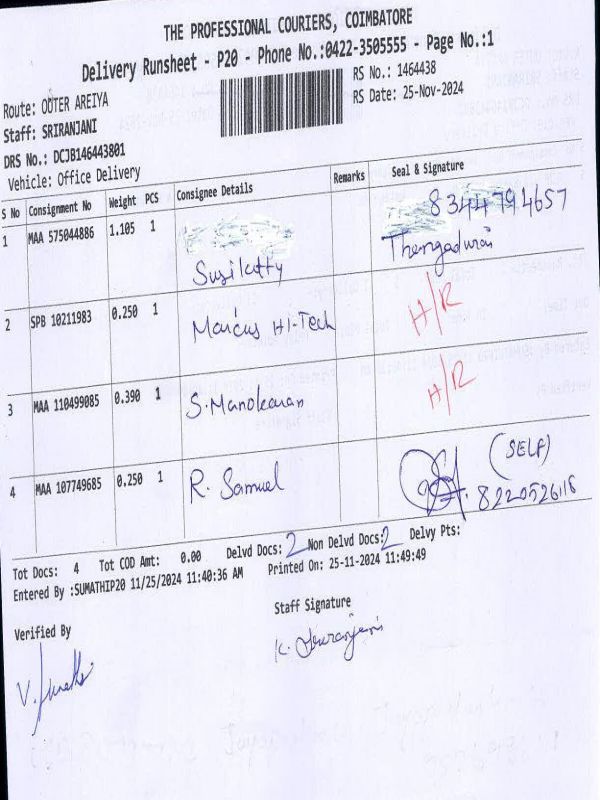 THE PROFESSIONAL COURIERS, COIMBATORE
Delivery Runsheet - P20 - Phone No.:0422-3505555 - Page No.:1
Route: OUTER AREIYA
RS No.: 1464438
Staff: SRIRANJANI
RS Date: 25-Nov-2024
DRS No.: DCJB146443801
Vehicle: Office Delivery
S No Consignment No Weight PCS Consignee Details Remarks Seal & Signature
1 MAA 575044886 1.105 1 Susikutty 8344794657
Thengadurai
2 SPB 10211983 0.250 1 Marcus HI-Tech H/R
3 MAA 110499085 0.390 1 S.Manokaran H/R
4 MAA 107749685 0.250 1 R. Samuel (SELF)
8220526116
Tot Docs: 4 Tot COD Amt: 0.00 Delvd Docs: 2 Non Delvd Docs: 2 Delvy Pts:
Entered By :SUMATHIP20 11/25/2024 11:40:36 AM Printed On: 25-11-2024 11:49:49
Verified By
Staff Signature